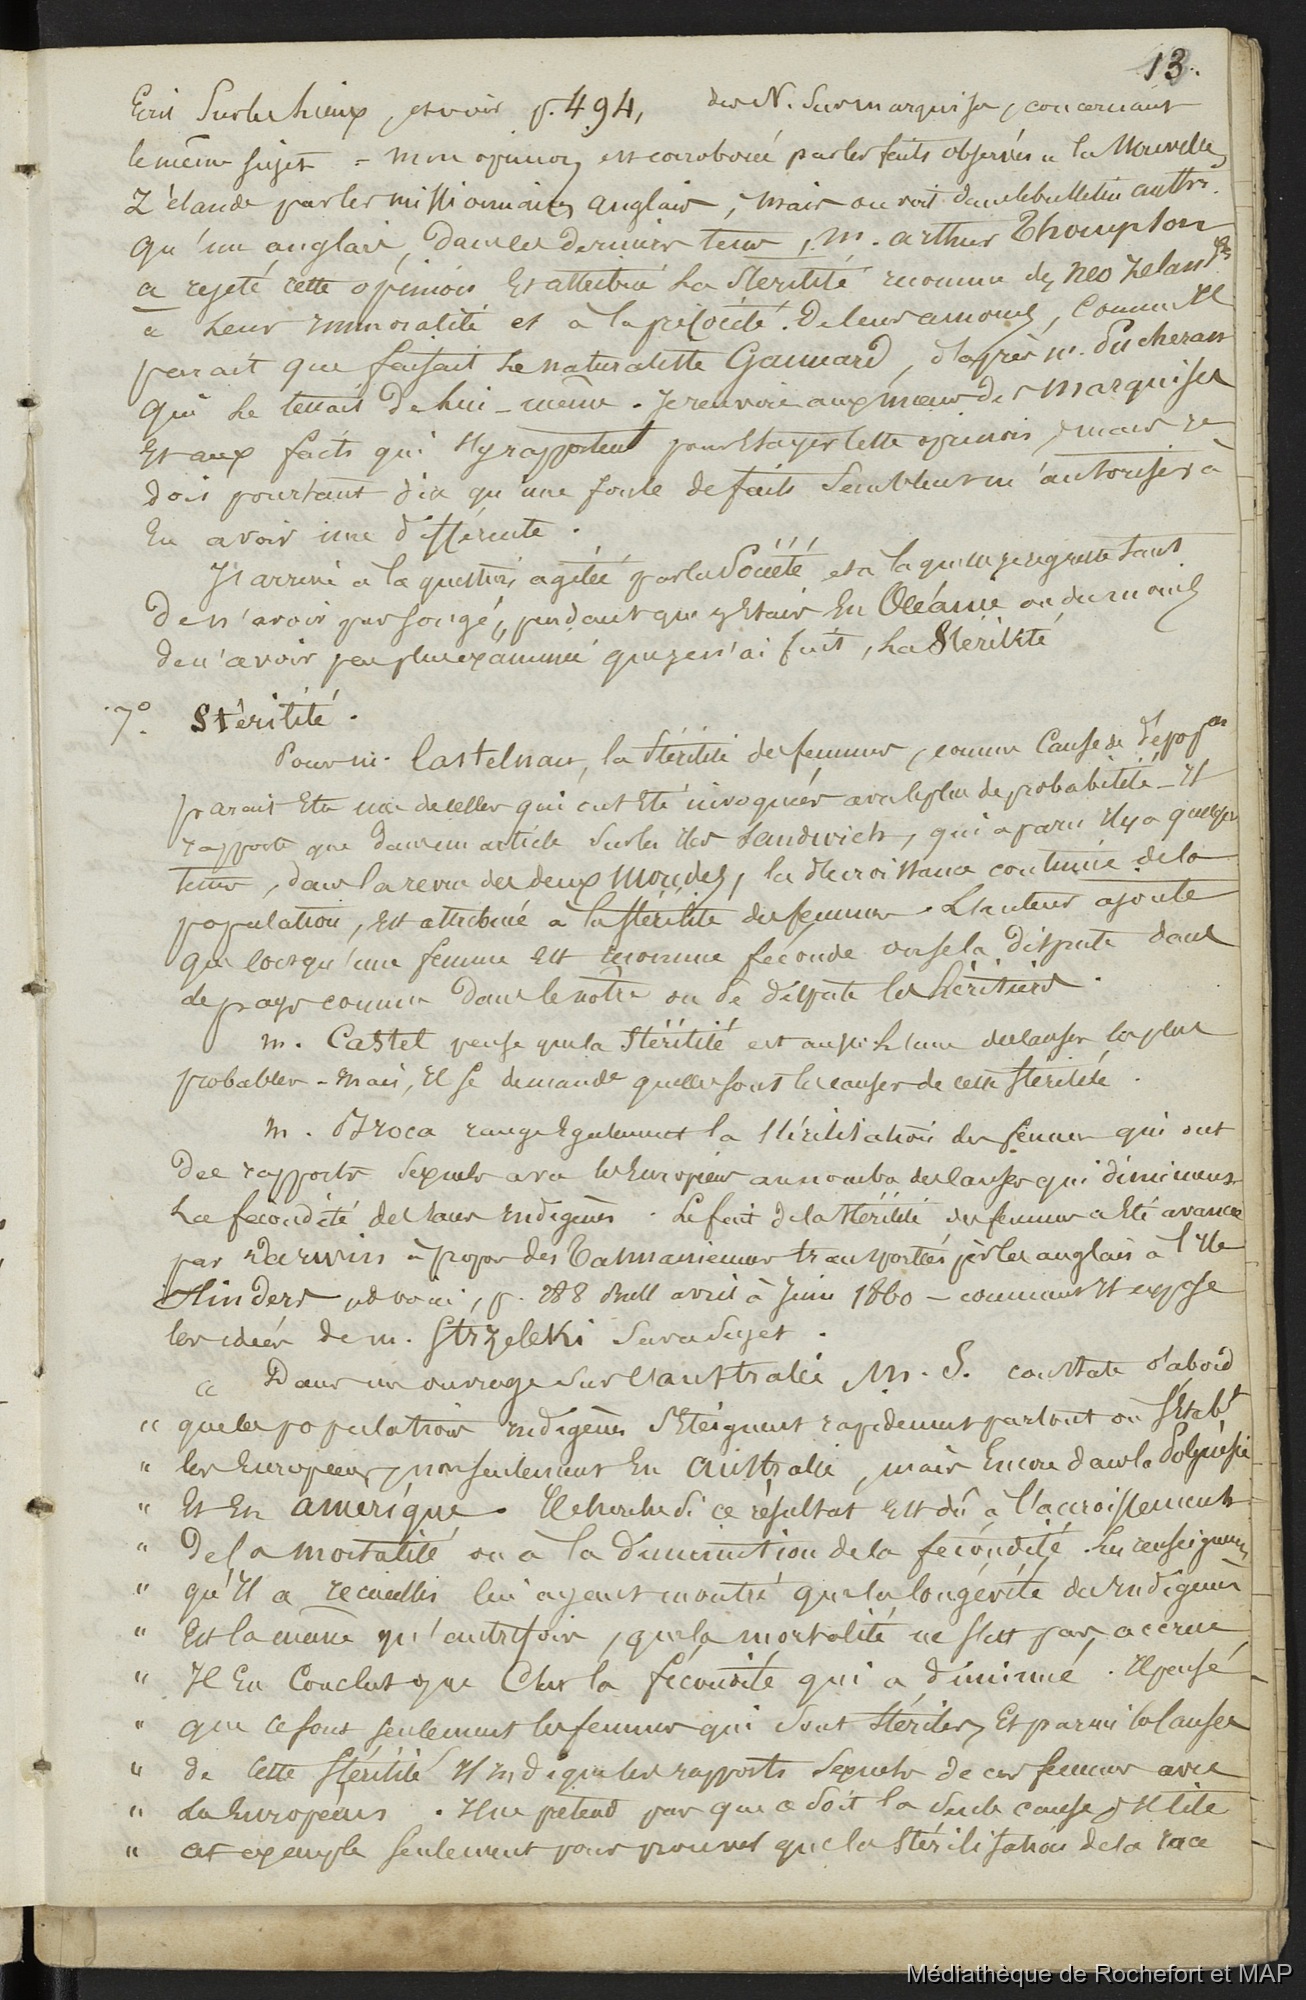 13.
Ecrit sur les lieux, et voir p. 494, des N. sur marquises, concernant
le même sujet = mon opinion est corroborée par les faits observés à la Nouvelle
Zélande par les missionnaires anglais, mais on voit dans le bulletin anthr.
qu'un anglais, dans ces derniers tems, m. arthur Thompson
a rejeté cette opinion et attribué la stérilité reconnue des neo zeland.ses
à leur immoralité et à la précocité de leurs amours, comme il
parait que faisait le naturaliste Gaimard, d'après m. Pucheran
qui le tenait de lui-même. Je renvoie aux mœurs des marquises
et aux faits qui s'y rapportent pour étayer cette opinion, mais je
dois pourtant dire qu'une foule de faits semblent m'autoriser à
en avoir une différente.
J'arrive à la question agitée par la Société et à laquelle je regrette tant
de n'avoir pas songé, pendant que j'étais en Océanie ou du moins
de n'avoir pas plus examiné que je n'ai fait, la Stérilité
7° Stérilité.
Pour m. Castelnau, la stérilité des femmes, comme cause de dépop.on
parait être une de celles qui ont été invoquées avec le plus de probabilité - il
rapporte que dans un article sur les iles Sandwich, qui a paru il y a quelque
tems, dans la revue des deux mondes, la décroissance continuée de la
population, est attribuée à la stérilité des femmes. L'auteur ajoute
que lorsqu'une femme est reconnue féconde on se la dispute dans
ce pays comme dans le notre on se dispute les héritières.
m. Castel pense que la stérilité est aussi l'une des causes les plus
probables - mais, il se demande quelles sont les causes de cette stérilité.
m. Broca range également la stérilisation des femmes qui ont
des rapports sexuels avec les Européens au nombre des causes qui diminuent
la fécondité des races indigènes. Le fait de la stérilité des femmes a été avancé
par Darwin à propos des Tasmaniennes transportées par les anglais à l'ile
Flinders, p. 288 Bull avril à Juin 1860 - comment il expose
les idées de m. Strzeleki sur ce sujet.
" Dans un ouvrage sur l'australie M. S. constate d'abord
" que les populations indigènes s'éteignent rapidement partout où s'étab.t
" les Européens, non seulement en australie, mais encore dans la Polynésie
" et en amérique. Il cherche si ce résultat est dû à l'accroissement
" de la mortalité ou à la diminution de la fécondité. Les renseignem.
" qu'il a recueillis lui ayant montré que la longévité des indigènes
" est la même qu'autrefois, que la mortalité ne s'est pas accrue,
" il en conclut que c'est la fécondité qui a diminué. Il pense
" que ce sont seulement les femmes qui sont stériles, et parmi les causes
" de cette stérilité il indique les rapports sexuels de ces femmes avec
" les Européens. Il ne prétend pas que ce soit la seule cause, il cite
" cet exemple seulement pour prouver que la stérilisation de la race
Médiathèque de Rochefort et MAP